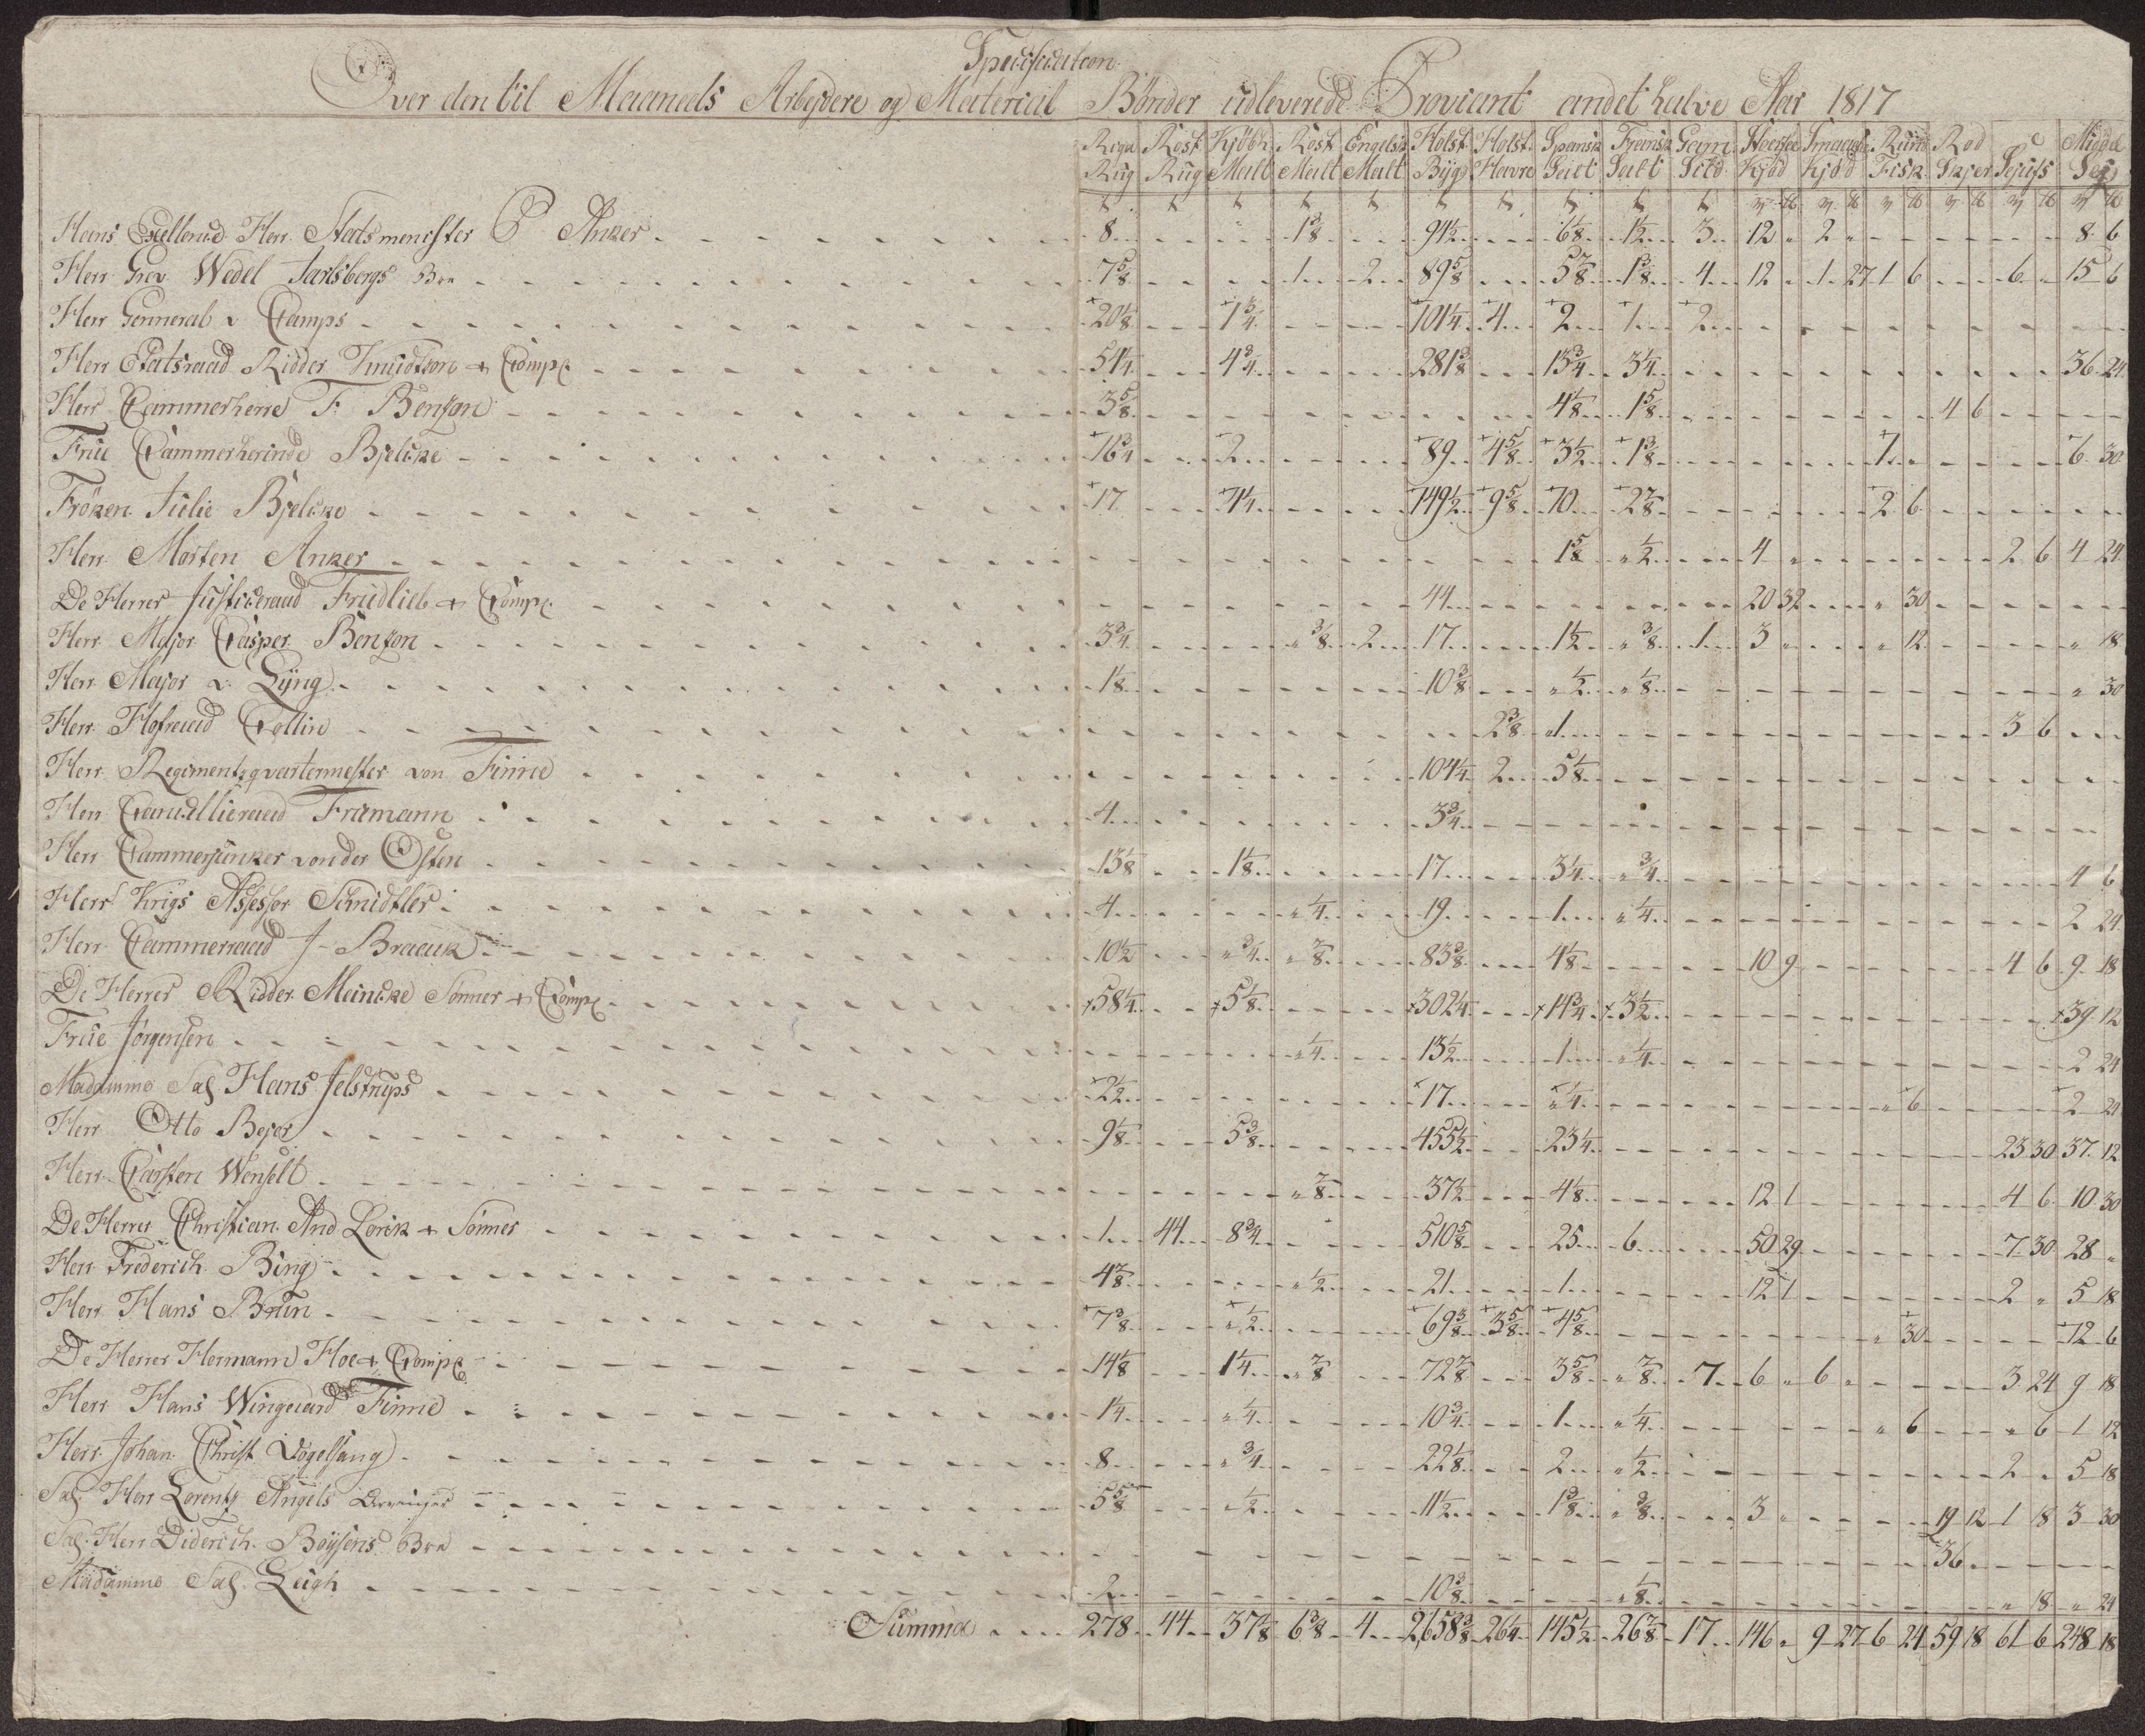 Specification
Over den til Maaneds Arbejdere og Material Bønder udleverede Proviant andet halve Aar 1817
Riga Rug | Rost Rug | Kjøbh Malt | Rost Malt | Engelsk Malt | Holst. Bÿg | Holst. Havre | Spansk Salt | Fransk Salt | Grøn Sild | Kjød | Kjød | Rund Fisk | Rød Skjer | Sejufs | Middel Sej
Hans Excellence Herr Statsmenister P Anker 8 1⅜ 94½ 6⅛ 1½ 3 12 " 2 " 8 6
Herr Grev Wedel Jarlsbergs Bro 7⅝ 1 2 89⅝ 5⅞ 1⅜ 4 12 " 1 27 1 6 6 " 15 6
Herr Genneral v Camps 20⅛ 1¾ 101¼ 4 2 1 2
Herr Etatsraad Ridder Knudtzon + Comp. 54¼ 4¾ 281⅜ 13¾ 3¼ 36 24
Herr Cammerherre F. Benzon 3⅝ 4⅛ 1⅝ 4 6
Frue Cammerherinde Bjelcke 16¾ 2 89 4⅝ 3½ 1⅜ 1 " 6 30
Frøken Julie Bjelcke 17 4¼ 149½ 9⅝ 10 2⅞ 2 6
Herr Morten Anker 1⅝ " ½ 4 " 2 6 4 24
De Herrer Justiceraad Fridlieb + Comp. 44 20 32 " 30
Herr Major Casper Benzon 3¾ " ⅜ 2 17 1½ " ⅜ 1 3 " " 12 " 18
Herr Major v. Lÿng 1⅛ 10⅜ " ½ " ⅛ " 30
Herr Hofraad Collin 2⅜ 1 3 6
Herr Regimentzqvartermester von Finne 104¼ 2 5⅛
Herr Cancelliéraad Framann 4 3¾
Herr Cammerjunker von der Osten 13⅛ 1⅛ 17 3¼ " ¾ 4 6
Herr Krigs Assessor Schnidtler 4 " ¼ 19 1 " ¼ 2 24
Herr Cammerraad J. Braack 10½ " ¾ " ⅞ 83⅜ 4⅛ 10 9 4 6 9 18
De Herrer Ridder Meincke Sønner + Comp. 58¼ 5⅛ 302¼ 14¾ 3½ 39 12
Frue Jørgensen " ¼ 13½ 1 " ¼ 2 24
Madamme Sal Hans Jelstrups 2½ 17 " ¼ " 6 2 24
Herr Otto Bejer 9⅛ 5⅜ 455½ 23¼ 23 30 37 12
Herr Carsten Wensell " ⅞ 37½ 4⅛ 12 1 4 6 10 30
De Herrer Christian And Lorck + Sønner 1 44 8¾ 510⅝ 25 6 50 29 7 30 28 "
Herr Frederich Bing 4⅞ " ½ 21 1 12 1 2 " 5 18
Herr Hans Brun 7⅜ " ½ 69⅜ 3⅝ 4⅝ " 30 12 6
De Herrer Hermann Hoe + Comp. 14⅛ 1¼ " ⅞ 72⅞ 3⅝ " ⅞ 7 6 " 6 " 3 24 9 18
Herr Hans Wingaard Finne 1¼ " ¼ 10¾ 1 " ¼ " 6 " 6 1 12
Herr Johan Christ Vogelsang 8 " ¾ 22⅛ 2 " ½ 2 " 5 18
Sal. Herr Lorentz Angels Arvinger 5⅝ " ½ 11½ 1⅜ " ⅜ 3 " 19 12 1 18 3 30
Sal. Herr Diderich Boÿsens Bro 36
Madamme Sal. Leigh 2 10⅜ " ⅛ " 18 " 24
Summa 278 44 37⅛ 6⅜ 4 2658⅜ 26¼ 145½ 26⅞ 17 146 " 9 27 6 24 59 18 61 6 248 18